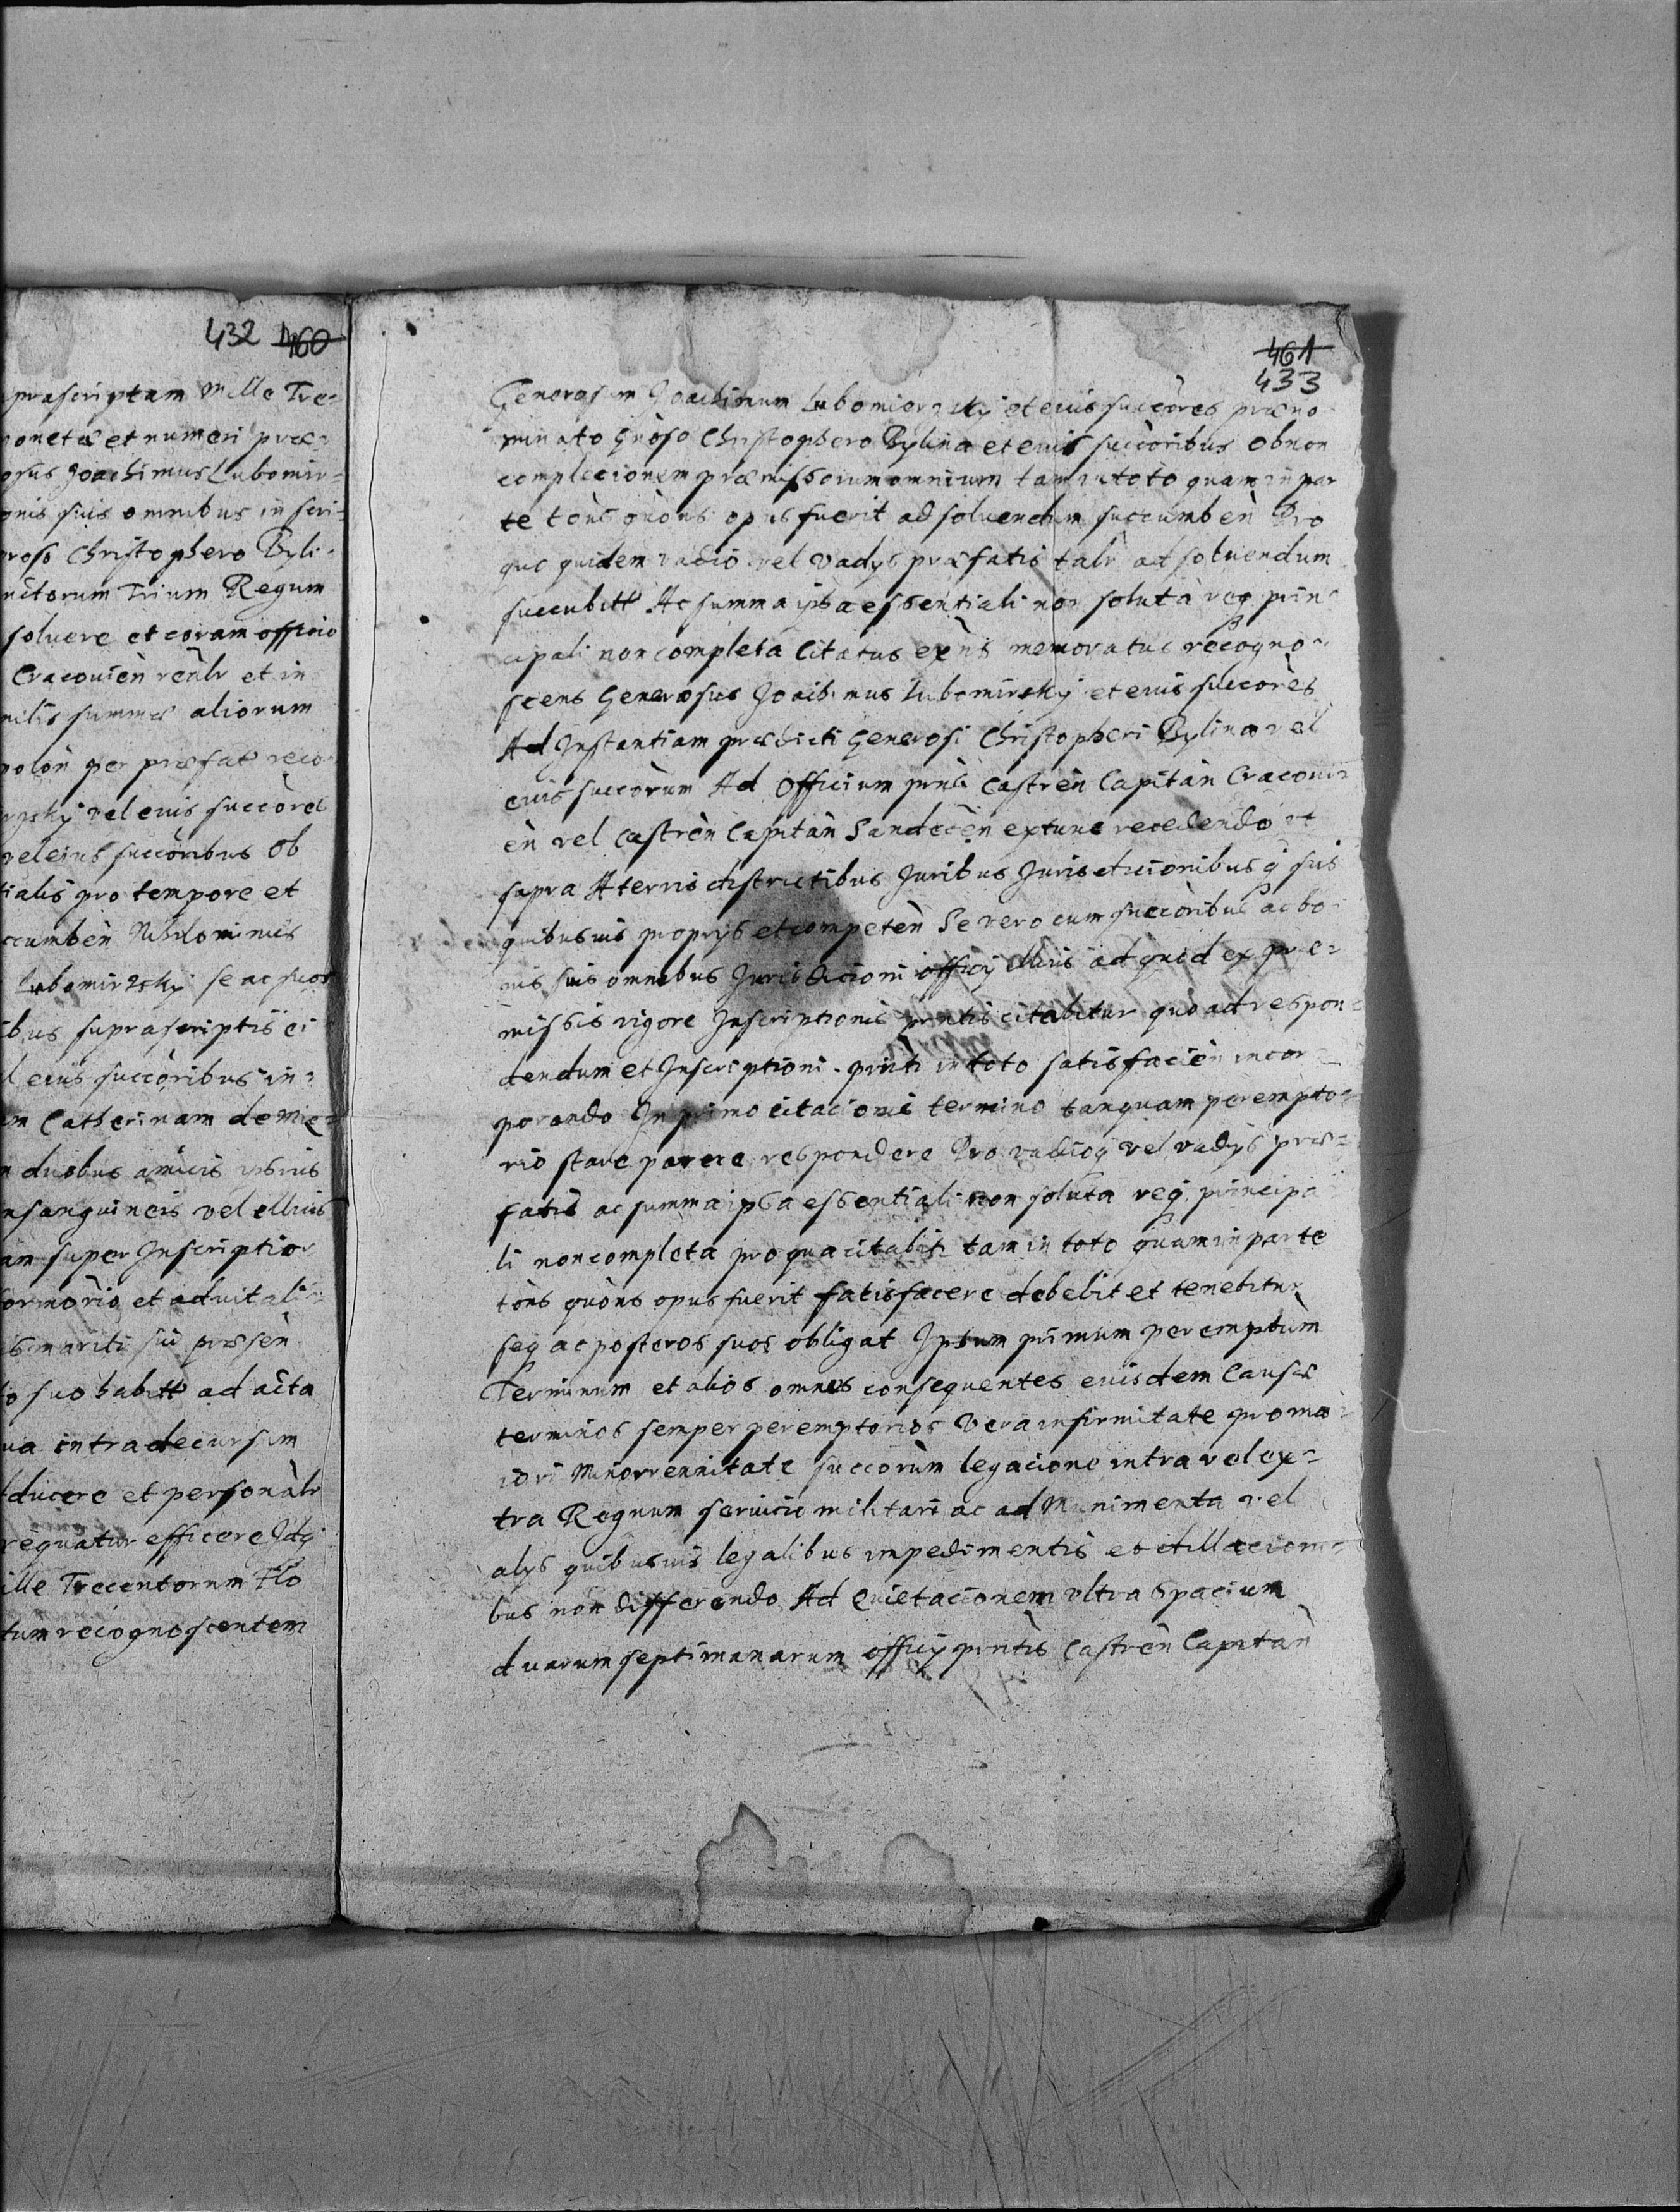 432 460
prascriptam Mille Tre=
monetæ et numeri præ=
osus Joachimus Lubomir=
onis suis omnibus inscri=
roso Christophero Byli=
nctorum Trium Regum
soluere et coram officio
Cracouien̄ reàlr et in
milis summæ aliorum
polòn per præfat reco
irzsky vel euis succòres
vel eius succòribus Ob
tialis pro tempore et
ccumbèn Nihilominus
Lubomirzsky se ac suos
ibus suprascriptis ei
l eius succòribus in=
am Catherinam de Mie=
n duobus amicis ipsius
nsanguineis vel illius
am super Inscriptio
formòrio et aduitali=
is mariti sui præsèn
io suo habitt ad acta
ua intra decursum
dducere et personàlr
requatur efficere Idq
ille Trecentorum Flo
tum recognoscentem
461
433
Generosum Joachimum Lubomierzsky et euis succòres præno=
minato Gnòso Christophero Bylina et euis succòribus Ob non
complecionem præmissorum omnium tam in toto quam in par
te tòns quòns opus fuerit ad soluendum succumbèn Pro
quo quidem vadio vel vadys præfatis talr ad soluendum
succubitt Ac summa ipsa essentiali non soluta req prin=
cipali non completa Citatus exñs memoratus recogno=
scens Generosus Joachimus Lubomirsky et euis succorès
Ad Instantiam prædicti Generosi Christopheri Bylina vel
euis succòrum Ad Officium prñs Castrèn Capitàn Cracoui=
èn vel Castrèn Capitàn Sandecèn extunc recedendo ut
supra A terris districtibus Juribus Jurisdicionibusq suis
quibusuis proprys et competèn Se vero cum succòribus ac bo
nis suis omnibus Jurisdicioni officij illius ad quod ex præ=
missis vigore Inscriptionis prntis citabitur quo ad respon=
dendum et Inscriptioni prnti in toto satisfacièn incor=
porando In primo citacionis termino tanquam perempto=
rio stare parere respondere Pro vadioq vel vadys præ=
fatis ac summa ipsa essentiali non soluta req principa
li non completa pro qua citabit tam in toto quam in parte
tòns quòns opus fuerit satisfacere debebit et tenebitur
seq ac posteros suos obligat Ipsum primum peremptùm
Terminum et alios omnes consequentes euisdem Causæ
terminos semper peremptorios Vera infirmitate pro ma=
iori Minorrennitate succorùm legacione intra vel ex=
tra Regnum seruicio militari ac ad Munimenta vel
alys quibusuis legalibus impedimentis et dillacioni=
bus non differendo Ad Quietacionem vltra spacium
duarum septimanarum officij prntis Castrèn Capitàn